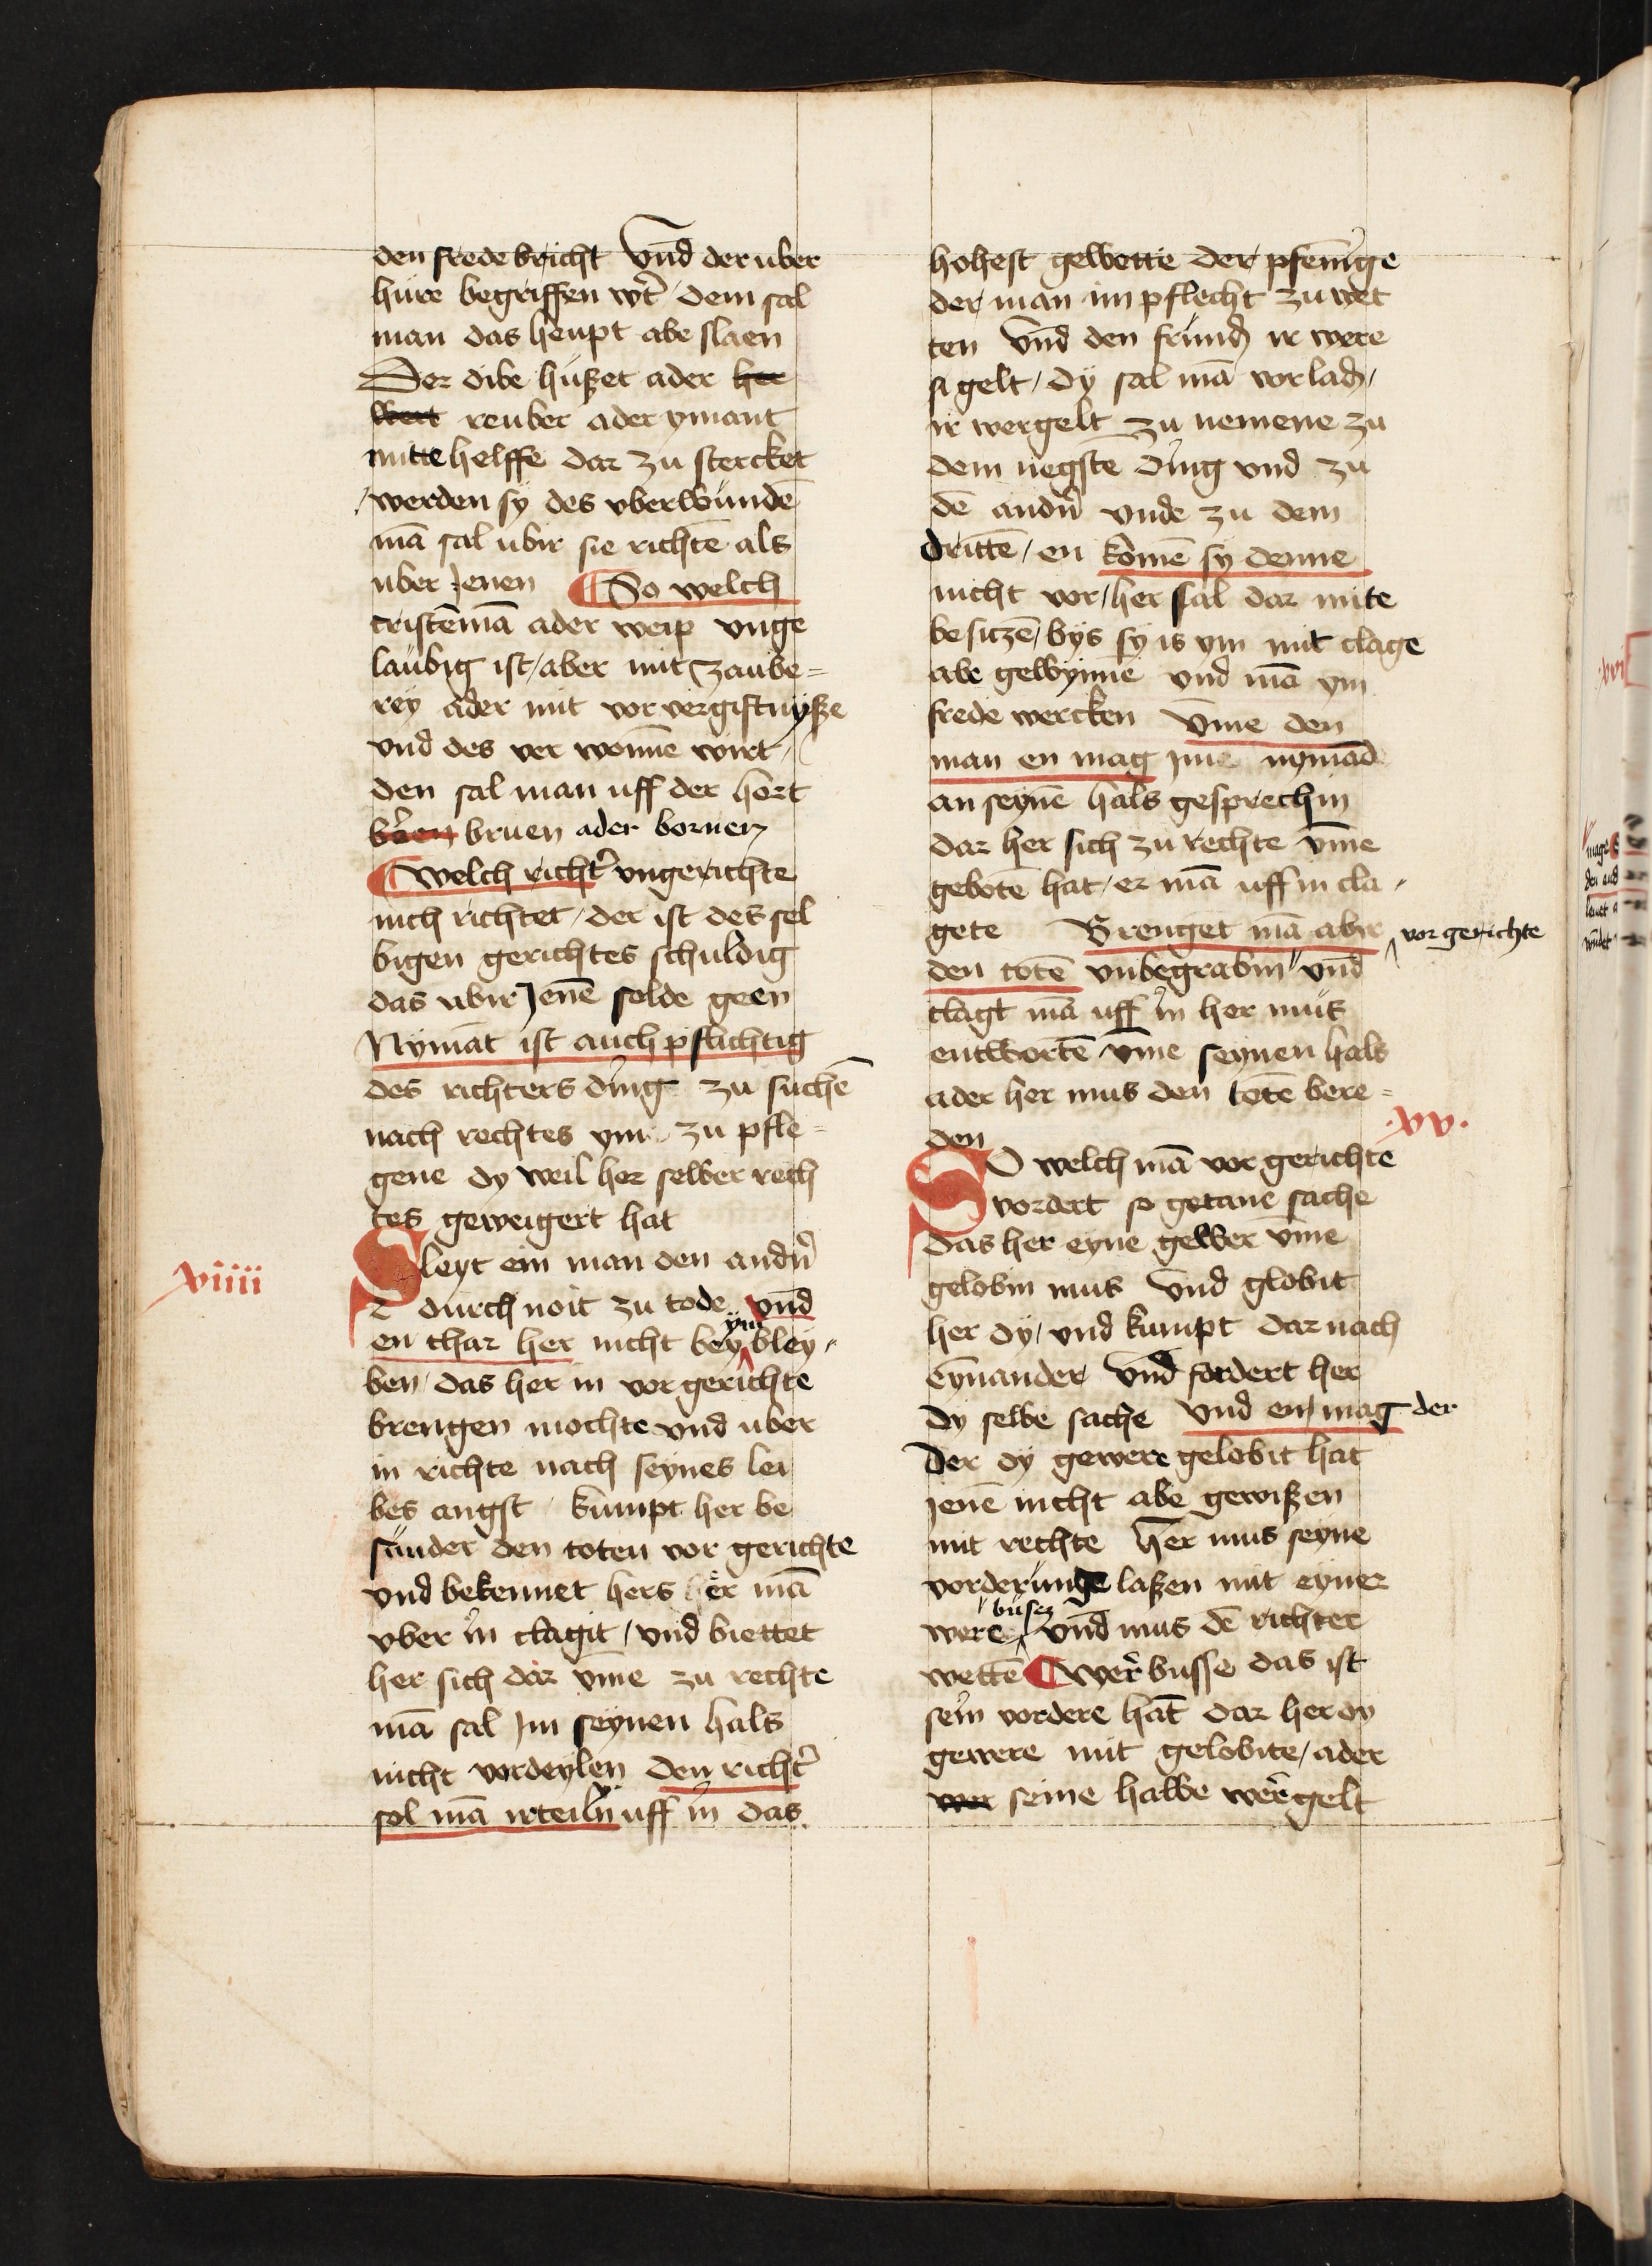 den frede bricht vnd der uber
hure begriffen wt dem sal
man das heupt abe slaen
Der dibe hußet ader her
wert reuber ader ymant
mitte helffe dar zu stercket
werden sy des vberwunde
mā sal ubir sie richtē als
uber Jenen ¶ So welch
cristēmā ader weip vnge
laubig ist / aber mit zaube=
rey ader mit vor vergiftnyße
vnd des ver wonnē wirt /
den sal man uff der hort
bruen ader bornen
¶ Welch richt' vngerichte
nich richtet / der ist des sel
bigen gerichtes schuldig
das ubir Jenē solde geen
Nymāt ist auch pflichtig
des richters ding zu suchē
nach rechtes ym zu pfle=
gene dy weil her selber rech
tes geweigert hat
viiii
Sleyt ein man den andn̄
durch noit zu tode vnd
en thar her nicht bey ym bley=
ben / das her in vor gerichte
brengen mochte vnd uber
in richte nach seynes lei
bes angst / kumpt her be
sunder den toten vor gerichte
vnd bekennet hers er mā
vber in clagit / vnd biettet
her sich dar vme zu rechte
mā sal Jm seynen hals
nicht vordeylen den richt'
sol mā irteiln uff in das
hohest gewette der pfennīge
der man im pflecht zu wet
ten vnd den frund ir were
gelt / dy sal mā vorlad /
ir wergelt zu nemene zu
dem negste ding vnd zu
dē andn̄ vnde zu dem
dritte / en komē sy denne
nicht vor / her sal dar mite
besiczē / bys sy is ym mit clage
abe gewynne vnd mā ym
frede wercken vme den
man en mag Jme nymād
an seynē hals gesprechin
dar her sich zu rechte vme
gebotē hat / er mā uff in cla=
gete Brenget mā abir vor gerichte
den totē vnbegrabin vnd
clagt mā uff in her mus
entwortē vme seynen hals
ader her mus den totē bere=
den
xv.
SO welch mā vor gerichte
vordert so getane sache
das her eyne gewer vme
gelobin mus vnd globit
her dy / vnd kumpt dar nach
eynander vnd fordert her
dy selbe sache vnd en mag der
Der dy gewere gelobit hat
Jenē nicht abe gewißen
mit rechte Her mus seyne
vorderunge laßen mit eyner
were busez vnd mus dē richter
wettē ¶ Wer busse das ist
sein vordere hāt dar her dy
gewere mit gelobite / ader
wer seine halbe weregelt